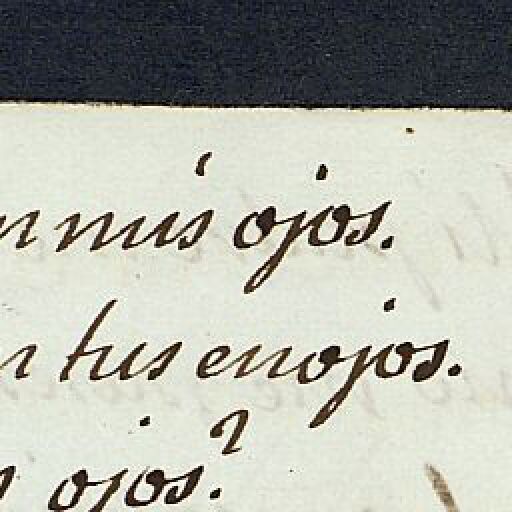 mis ojos.
tus enojos.
ojos?